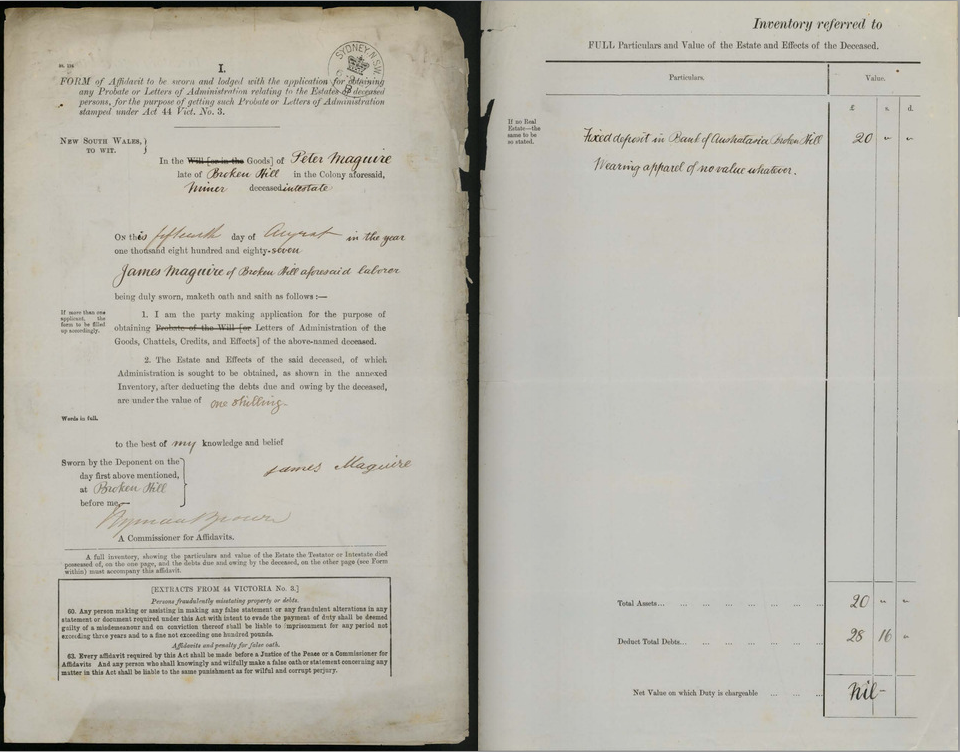 SYDNEY N.S.W.
I.
FORM of Affidavit to be sworn and lodged with the application for obtaining
any Probate or Letters of Administration relating to the Estates of deceased
persons, for the purpose of getting such Probate or Letters of Administration
stamped under Act 44 Vict. No. 3.
NEW SOUTH WALES, }
TO WIT.
In the Will [or in the Goods] of Peter Maguire
late of Broken Hill in the Colony aforesaid,
Miner deceased intestate
ON this fifteenth day of August in the year
one thousand eight hundred and eighty-seven
James Maguire of Broken Hill aforesaid laborer
being duly sworn, maketh oath and saith as follows :—
If more than one
applicant, the
form to be filled
up accordingly.
1. I am the party making application for the purpose of
obtaining Probate of the Will [or Letters of Administration of the
Goods, Chattels, Credits, and Effects] of the above-named deceased.
2. The Estate and Effects of the said deceased, of which
Administration is sought to be obtained, as shown in the annexed
Inventory, after deducting the debts due and owing by the deceased,
are under the value of one shilling.
Words in full.
to the best of my knowledge and belief
Sworn by the Deponent on the
day first above mentioned,
at Broken Hill
before me,—
James Maguire
Brown
A Commissioner for Affidavits.
A full inventory, showing the particulars and value of the Estate the Testator or Intestate died
possessed of, on the one page, and the debts due and owing by the deceased, on the other page (see Form
within) must accompany this affidavit.
[EXTRACTS FROM 44 VICTORIA No. 3.]
Persons fraudulently misstating property or debts.
60. Any person making or assisting in making any false statement or any fraudulent alterations in any
statement or document required under this Act with intent to evade the payment of duty shall be deemed
guilty of a misdemeanour and on conviction thereof shall be liable to imprisonment for any period not
exceeding three years and to a fine not exceeding one hundred pounds.
Affidavits and penalty for false oath.
63. Every affidavit required by this Act shall be made before a Justice of the Peace or a Commissioner for
Affidavits And any person who shall knowingly and wilfully make a false oath or statement concerning any
matter in this Act shall be liable to the same punishment as for wilful and corrupt perjury.
Inventory referred to
FULL Particulars and Value of the Estate and Effects of the Deceased.
Particulars. Value.
£ s. d.
If no Real
Estate—the
same to be
so stated.
Fixed deposit in Bank of Australasia Broken Hill 20 - -
Wearing apparel of no value whatever.
Total Assets... ... ... ... ... ... ... 20 - -
Deduct Total Debts... ... ... ... ... ... 28 16 -
Net Value on which Duty is chargeable ... ... ... Nil -